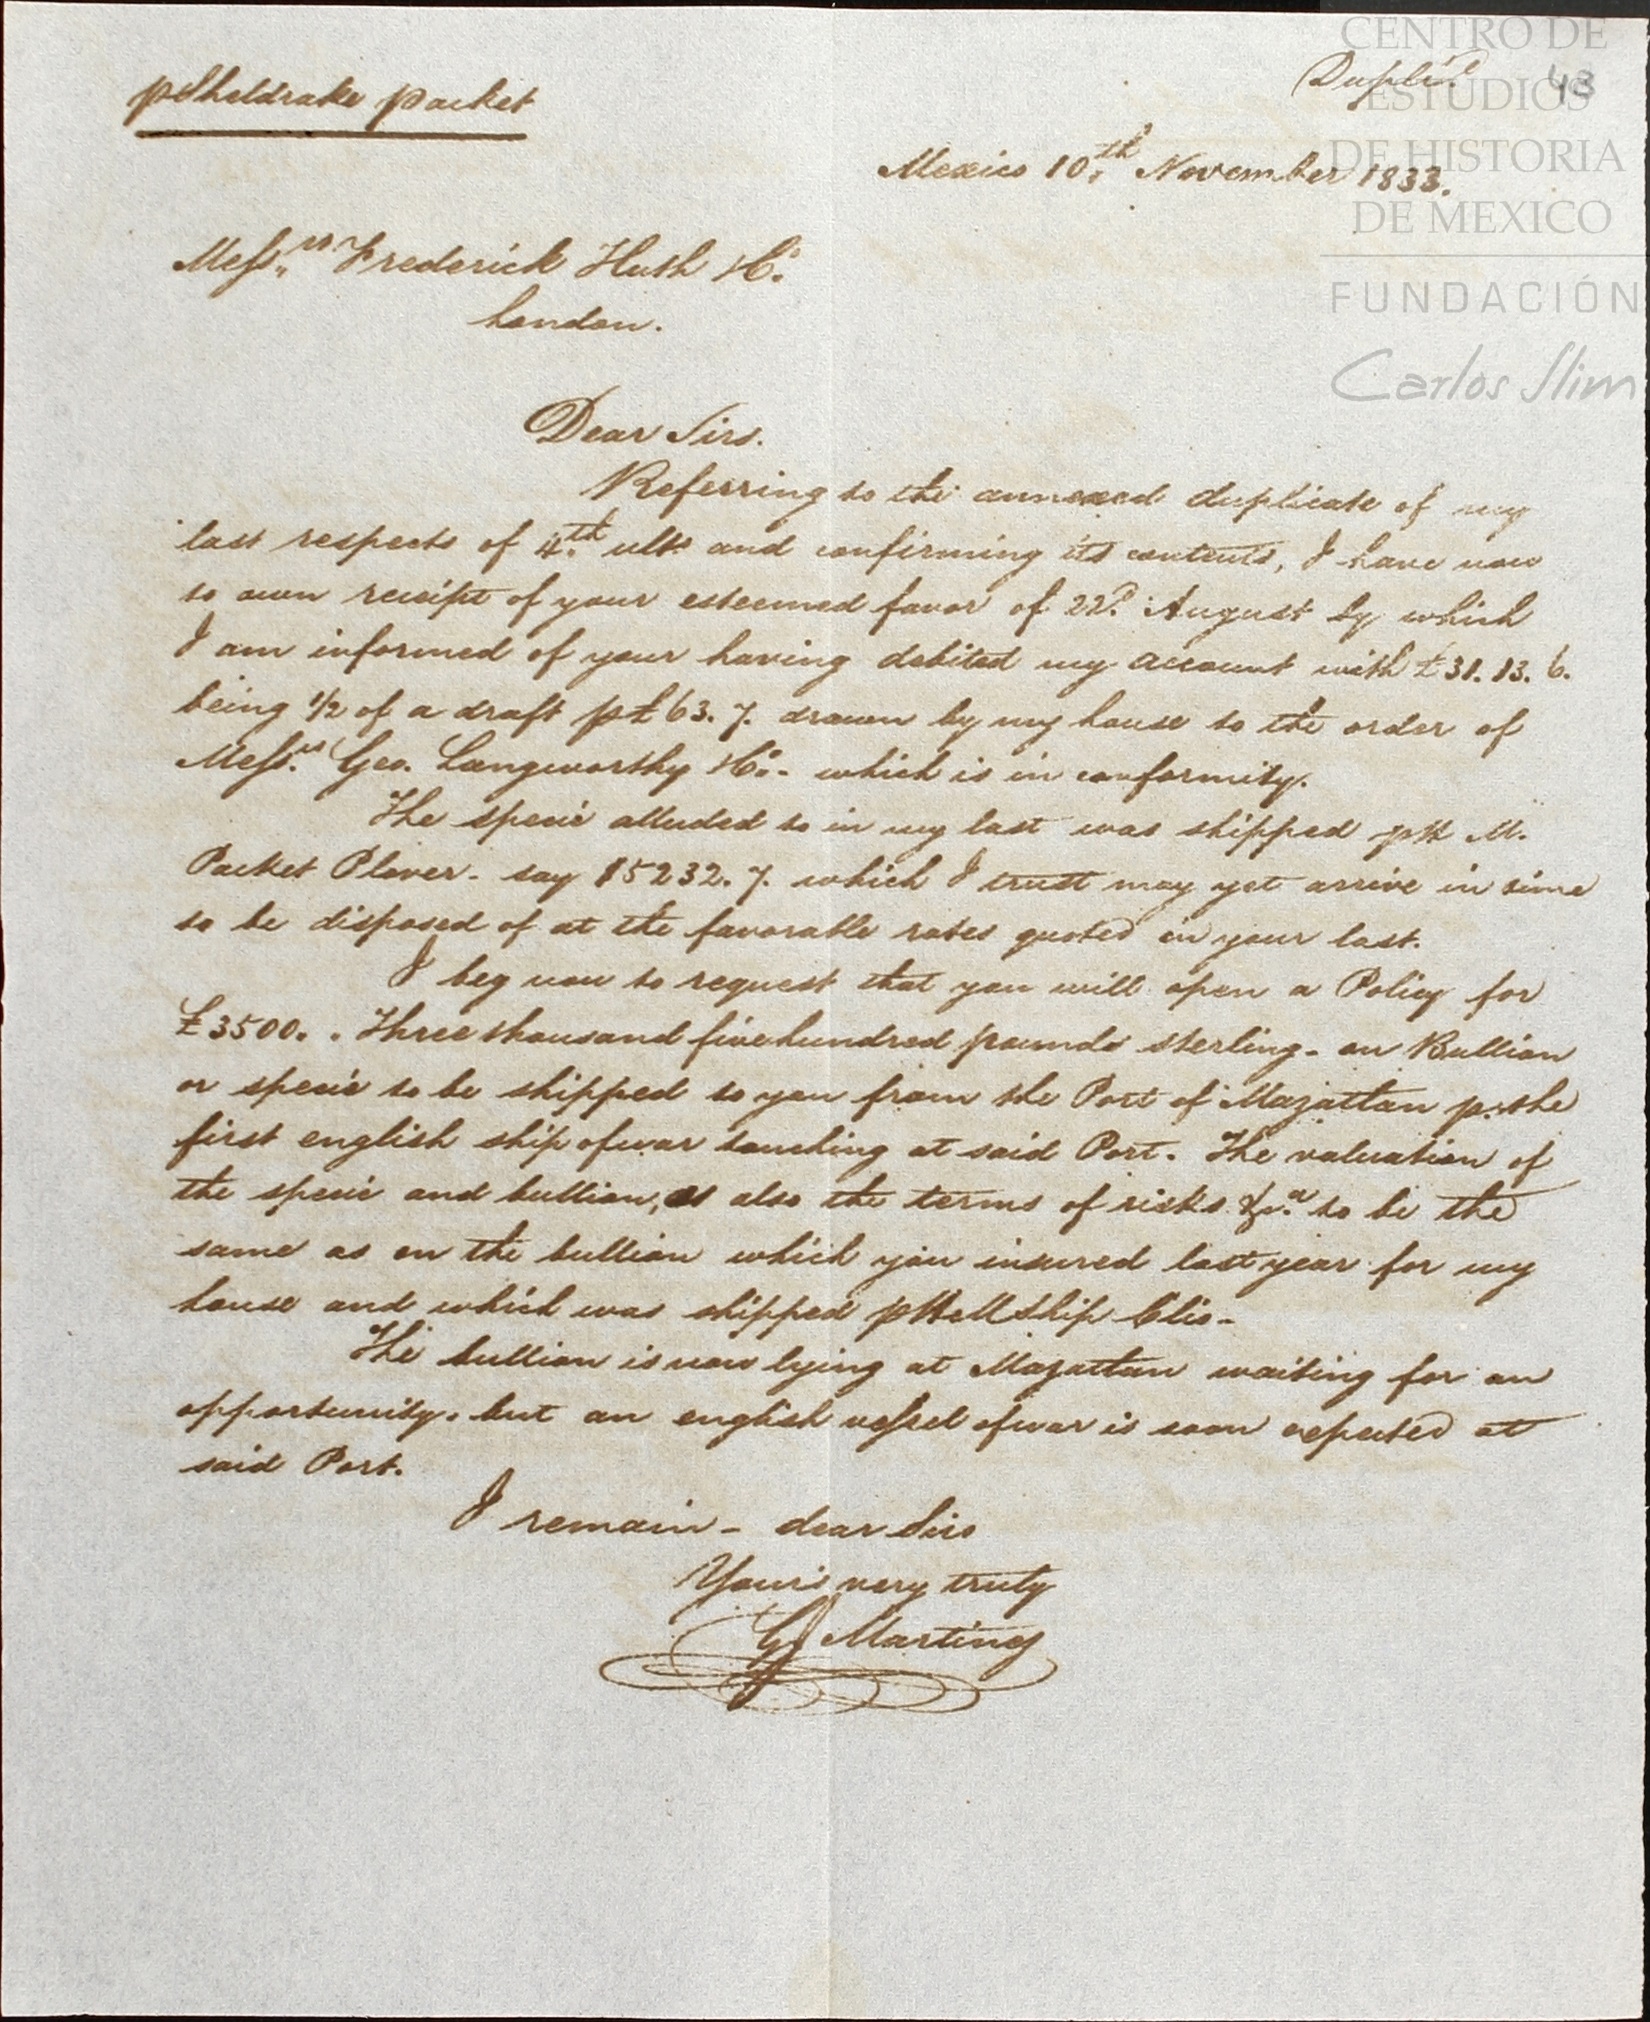 p Sheldrake packet
Duplic.
43
Mexico 10th November 1833.
Messrs Frederick Huth & Co.
London.
Dear Sirs.
Referring to the annexed duplicate of my
last respects of 4th ulto and confirming its contents, I have now
to own receipt of your esteemed favor of 22d. August by which
I am informed of your having debited my account with £31.13.6.
being 1/2 of a draft p £63.7. drawn by my house to the order of
Messrs Geo. Langworthy & Co. - which is in conformity.
The specie alluded to in my last was shipped p H M.
Packet Plover - say $5232.7. which I trust may yet arrive in time
to be disposed of at the favorable rates quoted in your last.
I beg now to request that you will open a Policy for
£3500. . Three thousand five hundred pounds sterling - on Bullion
or specie to be shipped to you from the Port of Mazattan p. the
first english ship of war touching at said Port. The valuation of
the specie and bullion, as also the terms of risks &c.a to be the
same as on the bullion which you insured last year for my
house and which was shipped p H M Ship Clio -
The bullion is now lying at Mazattan waiting for an
opportunity. but an english vessel of war is soon expected at
said Port.
I remain - dear Sirs
Yours very truly
G J Martinez
CENTRO DE
ESTUDIOS
DE HISTORIA
DE MEXICO
FUNDACIÓN
Carlos Slim